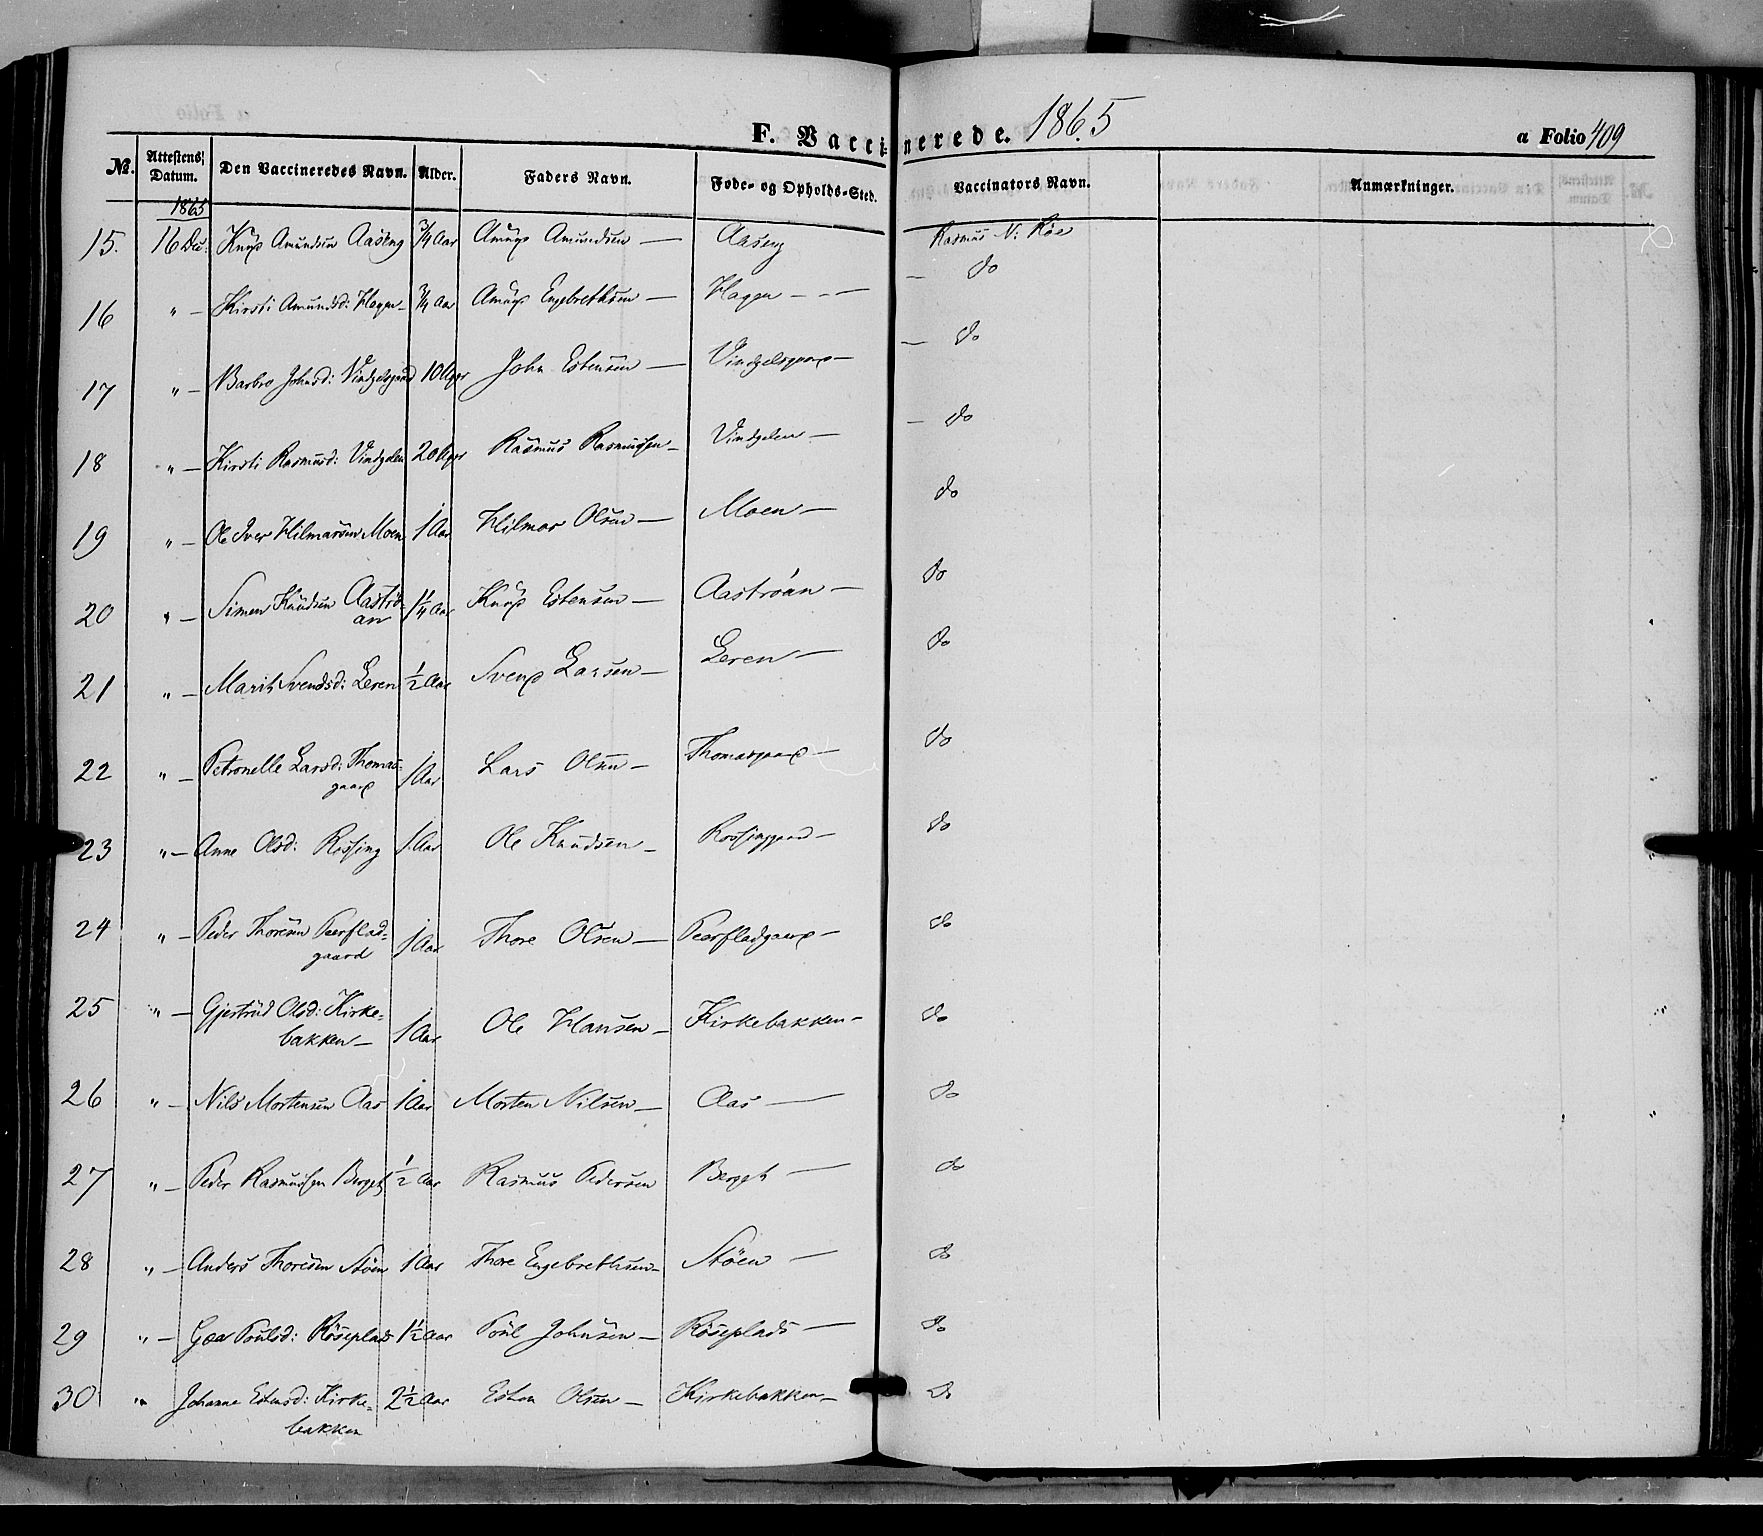 F. Vaccinerede. 1865 a Folio 409
No. Attestens Datum. Den Vaccineredes Navn. Alder. Faders Navn. Føde- og Opholds-Sted. Vaccinators Navn. Anmærkninger.
1865
15. 16 Dec: Knud Amundsen Aaseng 3/4 Aar Amund Amundsen — Aaseng Rasmus N: Røe
16 " — Kirsti Amundsd: Hagen — 3/4 Aar Amund Engebrethsen — Hagen - - — — do
17 " — Barbro Johnsd: Vindgelsgaard 10 Uger John Estensen — Vindgelsgaard — — do
18 " — Kirsti Rasmusd: Vindgelen 20 Uger Rasmus Rasmussen — Vindgelen — — do
19 " — Ole Iver Hilmarsen Moen 1 Aar Hilmar Olsen — Moen — do
20 " — Simen Knudsen Aaströ-
an 1 1/4 Aar Knud Estensen — Aaströan — do
21 " — Marit Svendsd: Leren 1/2 Aar Svend Larsen — Leren — do
22 " — Petronelle Larsd: Thomas-
gaard 1 Aar Lars Olsen — Thomasgaard — do
23 " — Anne Olsd: Rossing 1 Aar Ole Knudsen — Rossinggaard — do
24 " — Peder Thoresen Peerflad-
gaard 1 Aar Thore Olsen — Peerfladgaard — do
25 " — Gjertrud Olsd: Kirke-
bakken — 1 Aar Ole Hansen — Kirkebakken — do
26 " — Nils Mortensen Aas 1 Aar Morten Nilsen — Aas — do
27 " — Peder Rasmussen Berget 1/2 Aar Rasmus Pedersen Berget — do
28 " — Anders Thoresen Stöen 1 Aar Thore Engebrethsen — Stöen — do
29 " — Goa Poulsd: Röseplads 1 1/2 Aar Poul Johnsen — Röseplads — do
30 " Johanne Estensd: Kirke-
bakken 2 1/2 Aar Esten Olsen — Kirkebakken — do